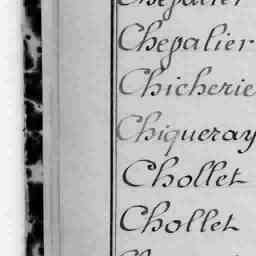 Chepalier
Chepalier
Chicherie
Chiqueray
Chollet
Chollet